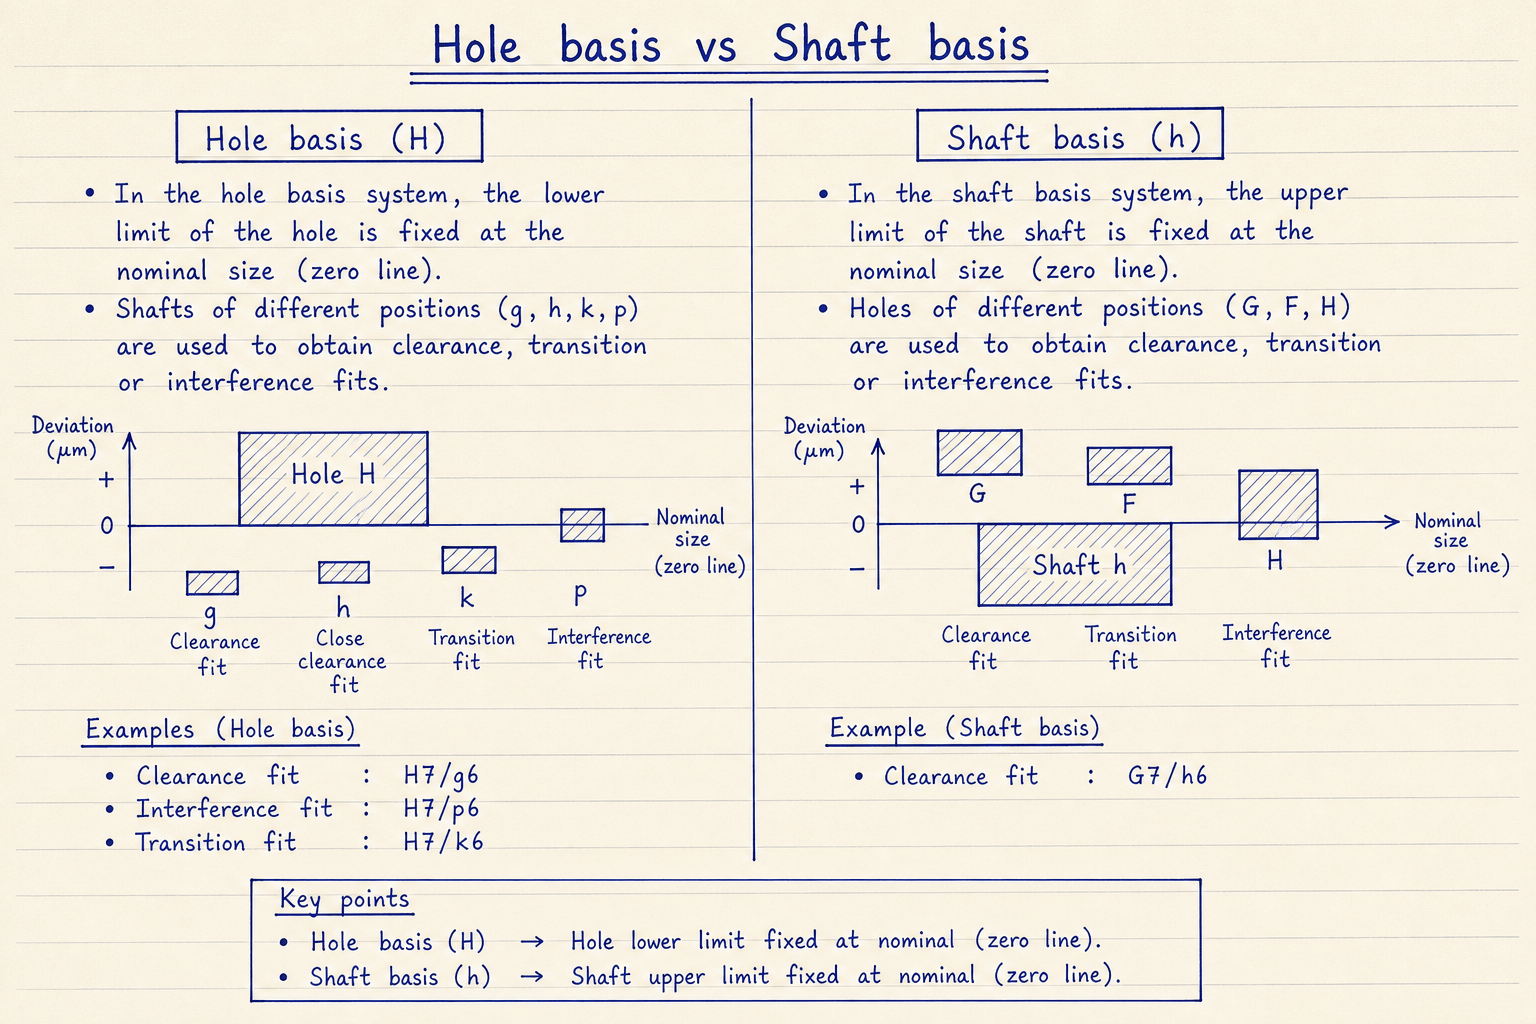 Hole basis vs Shaft basis
Hole basis (H)
• In the hole basis system, the lower
limit of the hole is fixed at the
nominal size (zero line).
• Shafts of different positions (g, h, k, p)
are used to obtain clearance, transition
or interference fits.
Deviation
(μm)
+
0
−
Hole H
g
h
k
p
Nominal
size
(zero line)
Clearance
fit
Close
clearance
fit
Transition
fit
Interference
fit
Examples (Hole basis)
• Clearance fit : H7/g6
• Interference fit : H7/p6
• Transition fit : H7/k6
Shaft basis (h)
• In the shaft basis system, the upper
limit of the shaft is fixed at the
nominal size (zero line).
• Holes of different positions (G, F, H)
are used to obtain clearance, transition
or interference fits.
Deviation
(μm)
+
0
−
G
F
H
Shaft h
Nominal
size
(zero line)
Clearance
fit
Transition
fit
Interference
fit
Example (Shaft basis)
• Clearance fit : G7/h6
Key points
• Hole basis (H) → Hole lower limit fixed at nominal (zero line).
• Shaft basis (h) → Shaft upper limit fixed at nominal (zero line).